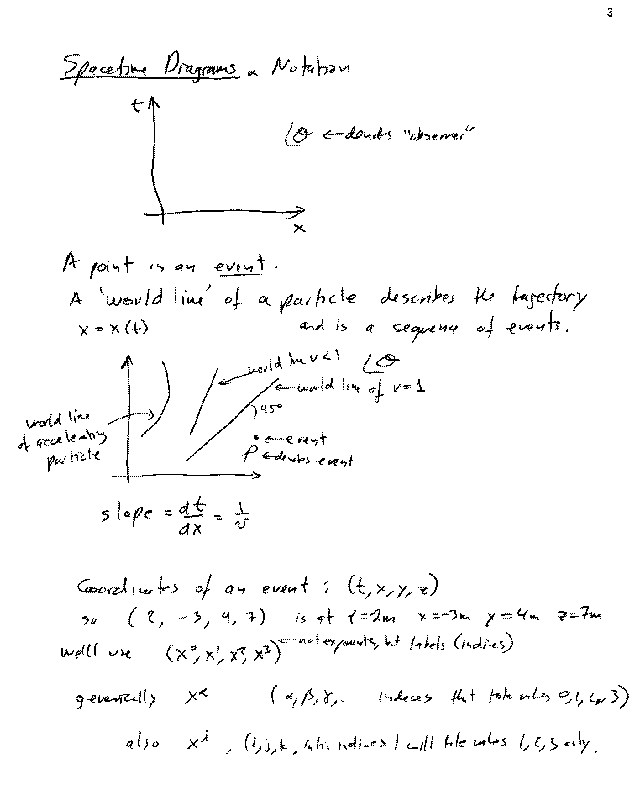 3
Spacetime Diagrams & Notation
t
O ← denotes "observer"
x
A point is an event.
A 'world line' of a particle describes the trajectory
x = x(t) and is a sequence of events.
world line v<1 O
← world line of v=1
45°
world line
of accelerating
particle
← event
P ← denotes event
slope = dt/dx = 1/v
Coordinates of an event : (t, x, y, z)
so (2, -3, 4, 7) is at t=2m x=-3m y=4m z=7m
we'll use (x⁰, x¹, x², x³) ← not exponents, but labels (indices)
generically x^α (α, β, γ, .. indices that take values 0, 1, 2, or 3)
also x^i , (i, j, k, indices) will take values 1, 2, 3 only.